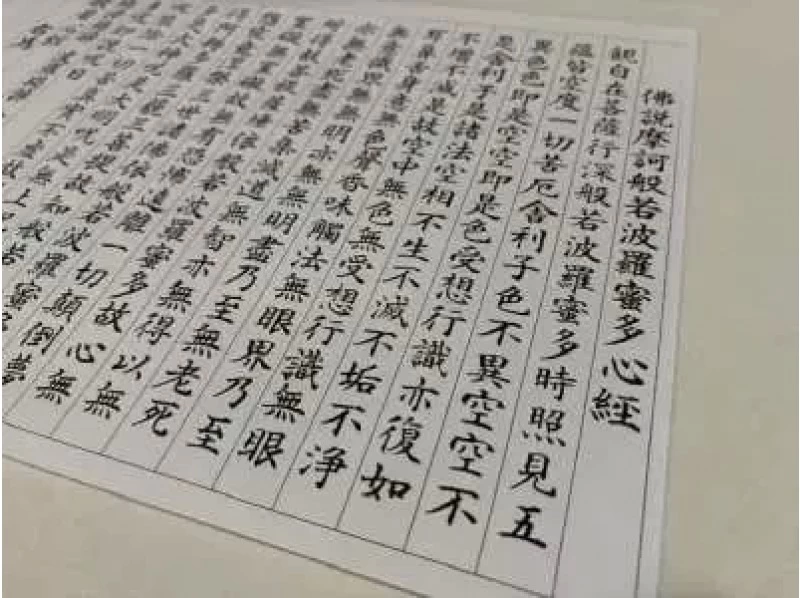 佛説摩訶般若波羅蜜多心經
觀自在菩薩行深般若波羅蜜多時照見五
蘊皆空度一切苦厄舍利子色不異空空不
異色色即是空空即是色受想行識亦復如
是舍利子是諸法空相不生不滅不垢不淨
不增不減是故空中無色無受想行識無眼
耳鼻舌身意無色聲香味觸法無眼界乃至
無意識界無無明亦無無明盡乃至無老死
亦無老死盡無苦集滅道無智亦無得以無
所得故菩提薩埵依般若波羅蜜多故心無
罣礙無罣礙故無有恐怖遠離一切顛倒夢
三世諸佛依般若波羅蜜
三藐三菩提故知般若